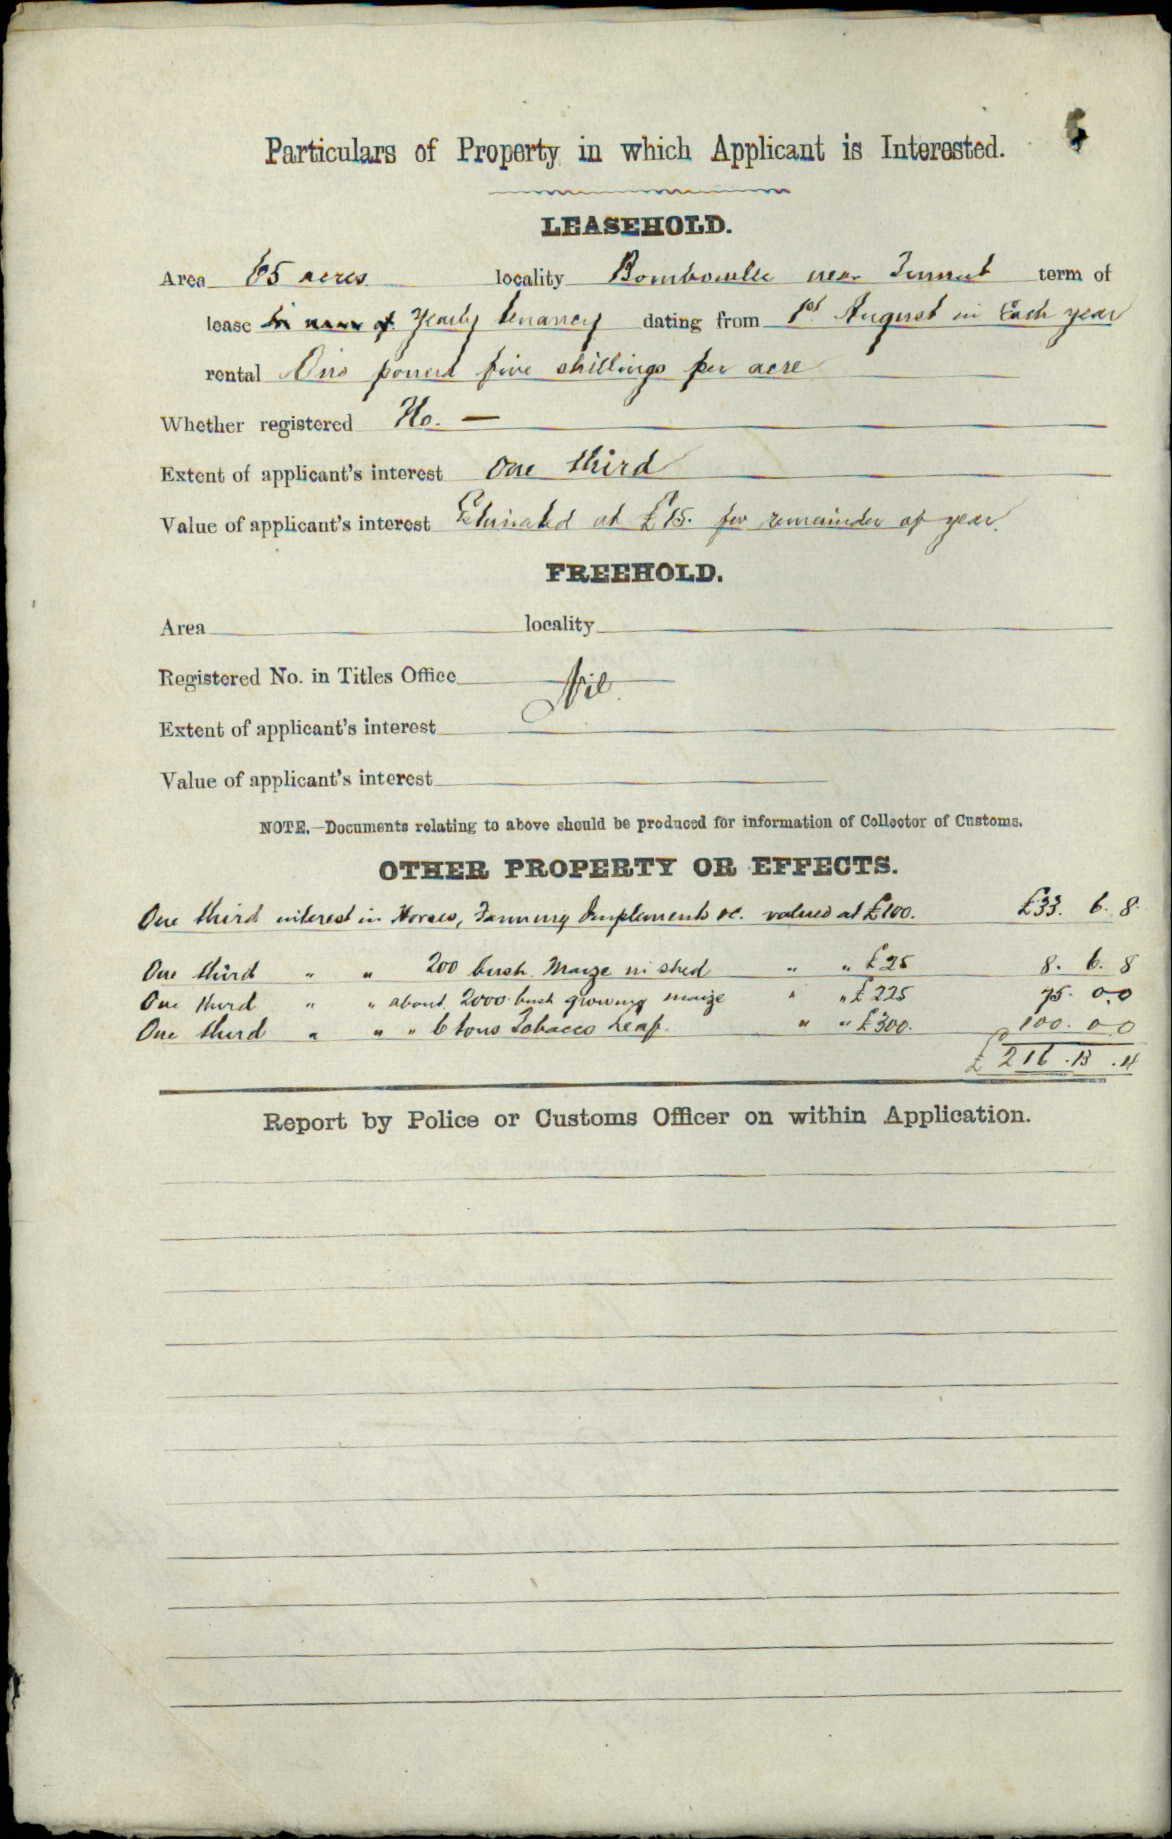 Particulars of Property in which Applicant is Interested.
LEASEHOLD.
Area 65 acres locality Bombowlee near Tumut term of
lease Yearly tenancy dating from 1st August in Each year
rental One pound five shillings per acre
Whether registered No. —
Extent of applicant's interest One third
Value of applicant's interest Estimated at £15. for remainder of year.
FREEHOLD.
Area locality
Registered No. in Titles Office
Nil
Extent of applicant's interest
Value of applicant's interest
NOTE.—Documents relating to above should be produced for information of Collector of Customs.
OTHER PROPERTY OR EFFECTS.
One third interest in Horses, Farming Implements &c. valued at £100. £33. 6. 8.
One third " " 200 bush. Maize in shed " " £25 8. 6. 8
One third " " about 2000 bush growing maize " " £225 75. 0.0
One third " " " 6 tons Tobacco Leaf. " " £300. 100. 0.0
£ 216. 13. 4
Report by Police or Customs Officer on within Application.